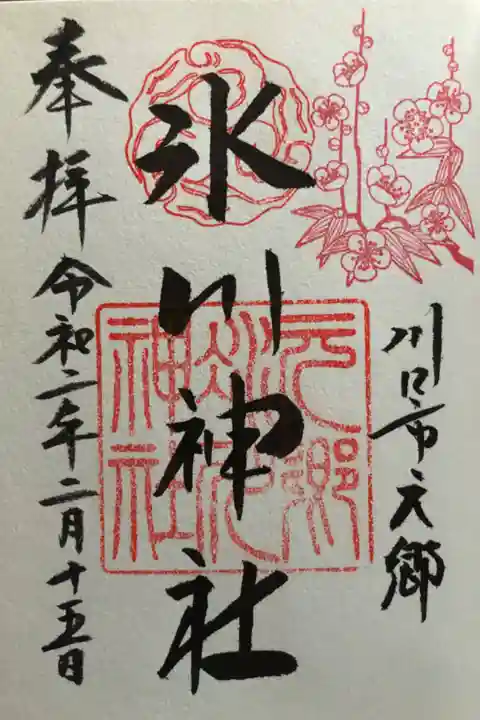 川口市元郷
氷川神社
元郷
氷川
神社
奉拝 令和二年二月十五日